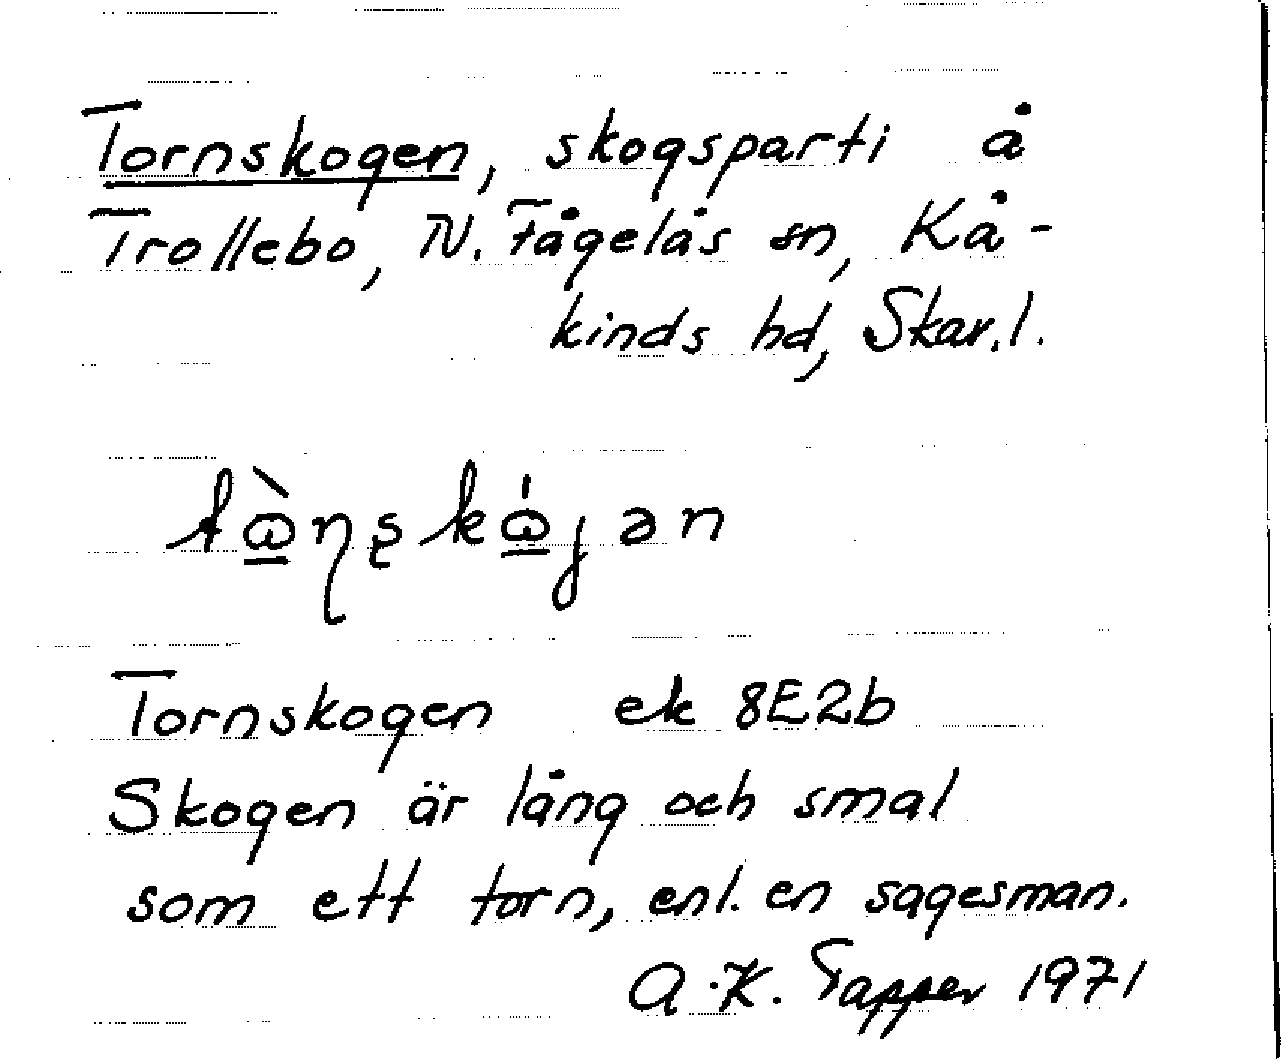 Tornskogen, skogsparti å
Trollebo, N. Fågelås sn, Kå-
kinds hd, Skar.l.
Tornskogen ek 8E2b
Skogen är lång och smal
som ett torn, enl. en sagesman.
A.K. Tapper 1971